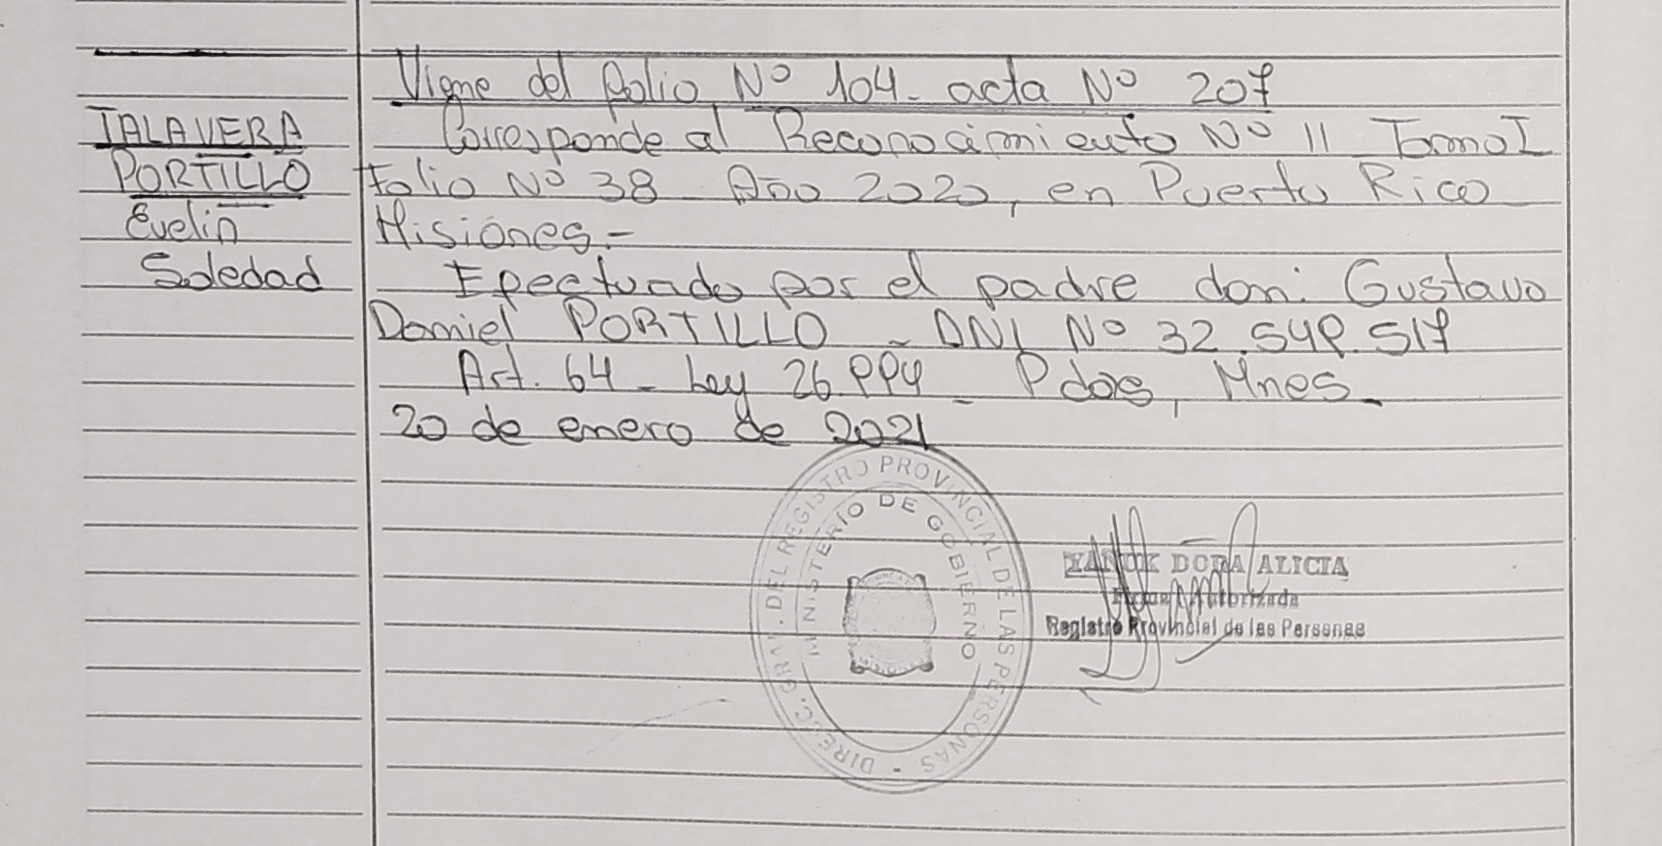 Viene del folio Nº 104- acta Nº 207
TALAVERA
PORTILLO
Evelin
Soledad
Corresponde al Reconocimiento Nº 11 Tomo I
Folio Nº 38 Año 2020, en Puerto Rico
Misiones.-
Efectuado por el padre don: Gustavo
Daniel PORTILLO - DNI Nº 32.549.517
Art. 64 - Ley 26.994 - Pdas, Mnes.
20 de enero de 2021
DIREC. GRAL. DEL REGISTRO PROVINCIAL DE LAS PERSONAS
MINISTERIO DE GOBIERNO
DORA ALICIA
Firma Autorizada
Registro Provincial de las Personas